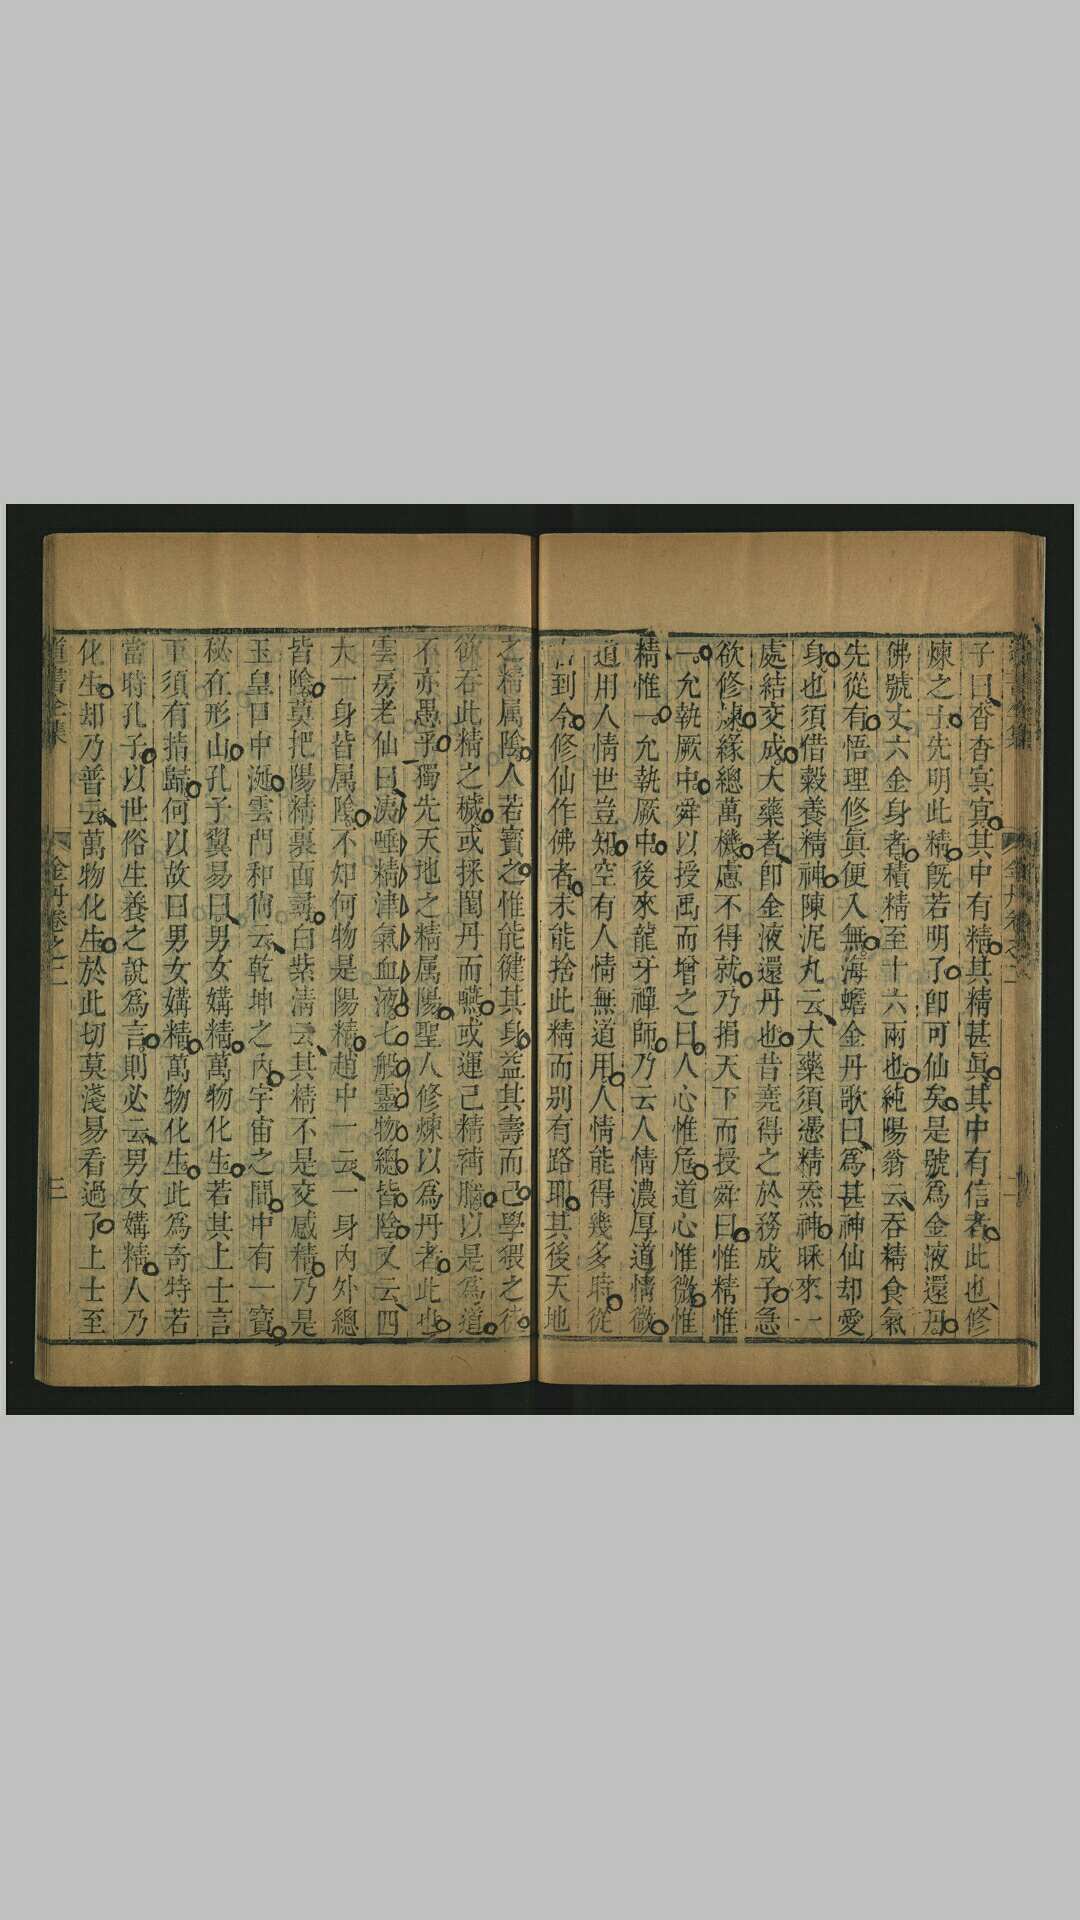 子曰杳杳冥冥其中有精其精甚眞其中有信者此也修
煉之士先明此精旣若明了卽可仙矣是號爲金液還丹
佛號丈六金身者積精至十六兩也純陽翁云吞精食氣
先從有悟理修眞便入無海蟾金丹歌曰爲甚神仙却愛
身也須借穀養精神陳泥丸云大藥須憑精炁神眯來一
處結交成大藥者卽金液還丹也昔堯得之於務成子急
欲修煉緣總萬機慮不得就乃捐天下而授舜曰惟精惟
一允執厥中舜以授禹而增之曰人心惟危道心惟微惟
精惟一允執厥中後來龍牙禪師乃云人情濃厚道情微
道用人情世豈知空有人情無道用人情能得幾多時從
古到今修仙作佛者未能捨此精而别有路耶其後天地
之精属陰人若寳之惟能健其身益其壽而已學猥之徒
欲吞此精之穢或採閨丹而嚥或運己精補腦以是爲道
不亦愚乎獨先天地之精属陽聖人修煉以爲丹者此也
雲房老仙曰涕唾精津氣血液七般靈物總皆陰又云四
大一身皆属陰不知何物是陽精趙中一云一身內外總
皆陰莫把陽精裏面尋白紫清云其精不是交感精乃是
玉皇口中涎雲門和尙云乾坤之內宇宙之間中有一寳
秘在形山孔子翼易曰男女媾精萬物化生若其上士言
下須有指歸何以故曰男女媾精萬物化生此爲奇特若
當時孔子以世俗生養之說爲言則必云男女媾精人乃
化生却乃普云萬物化生於此切莫淺易看過了上士至
道書全集
金丹卷之二
三